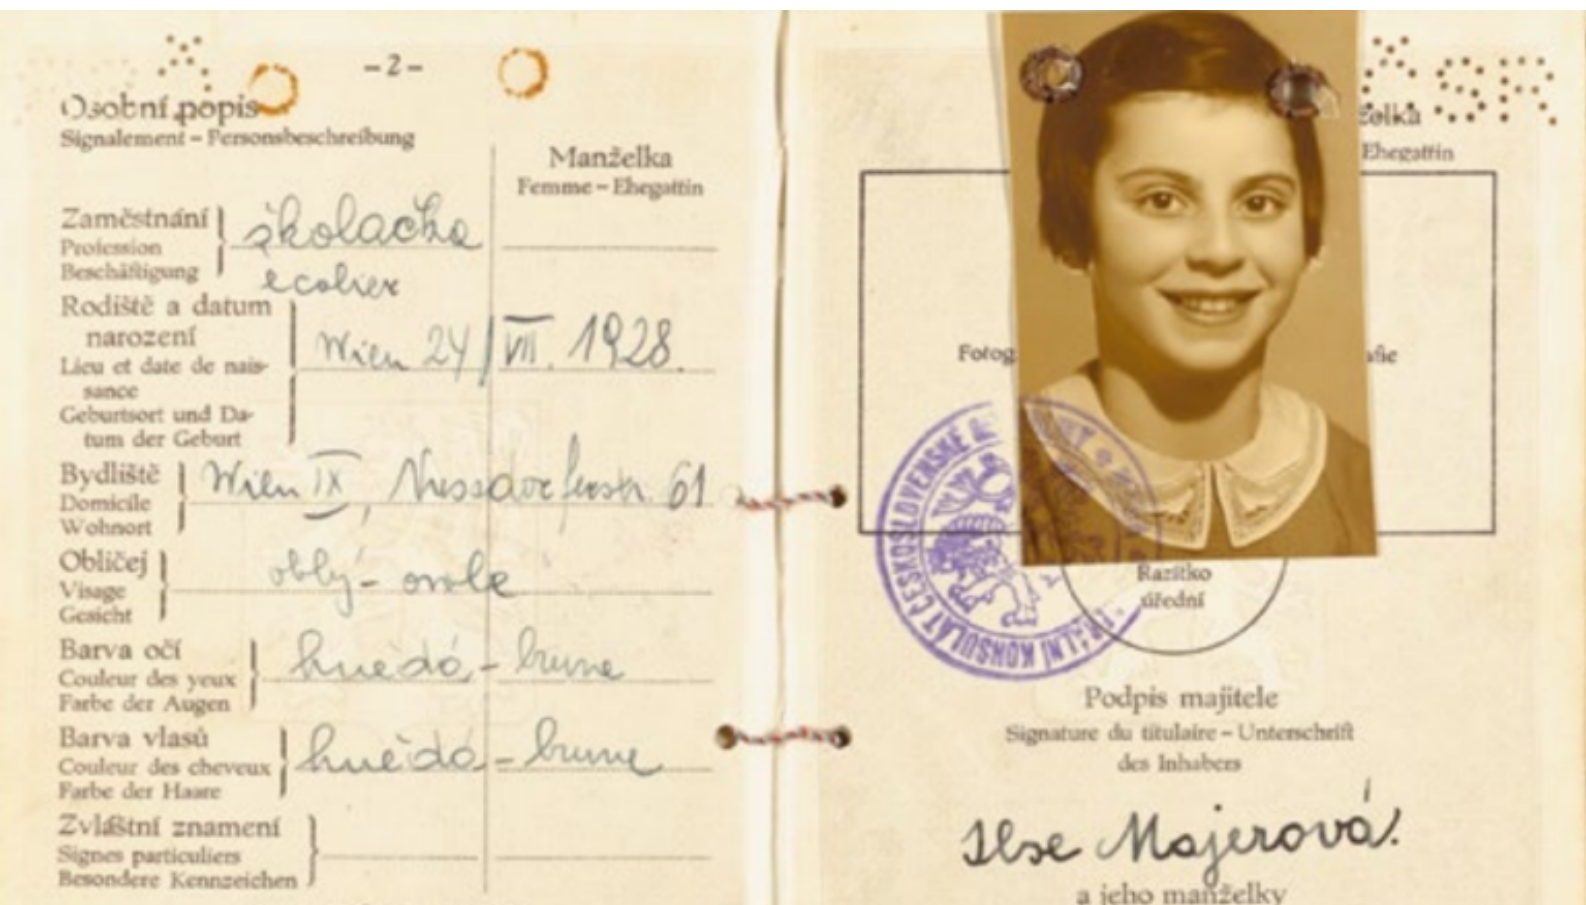 - 2 -
Osobní popis
Signalement – Personsbeschreibung
Manželka
Femme – Ehegattin
Zaměstnání
Profession
Beschäftigung
školačka
ecolier
Rodiště a datum
narození
Lieu et date de nais-
sance
Geburtsort und Da-
tum der Geburt
Wien 24/VII. 1928.
Bydliště
Domicile
Wohnort
Wien IX, Nussdorferstr. 61
Obličej
Visage
Gesicht
oblý - ovale
Barva očí
Couleur des yeux
Farbe der Augen
hnědá - brune
Barva vlasů
Couleur des cheveux
Farbe der Haare
hnědá - brune
Zvláštní znamení
Signes particuliers
Besondere Kennzeichen
ČSR
Ehegattin
KONSULÁT ČESKOSLOVENSKÉ
Razítko
úřední
Podpis majitele
Signature du titulaire – Unterschrift
des Inhabers
Ilse Majerová.
a jeho manželky